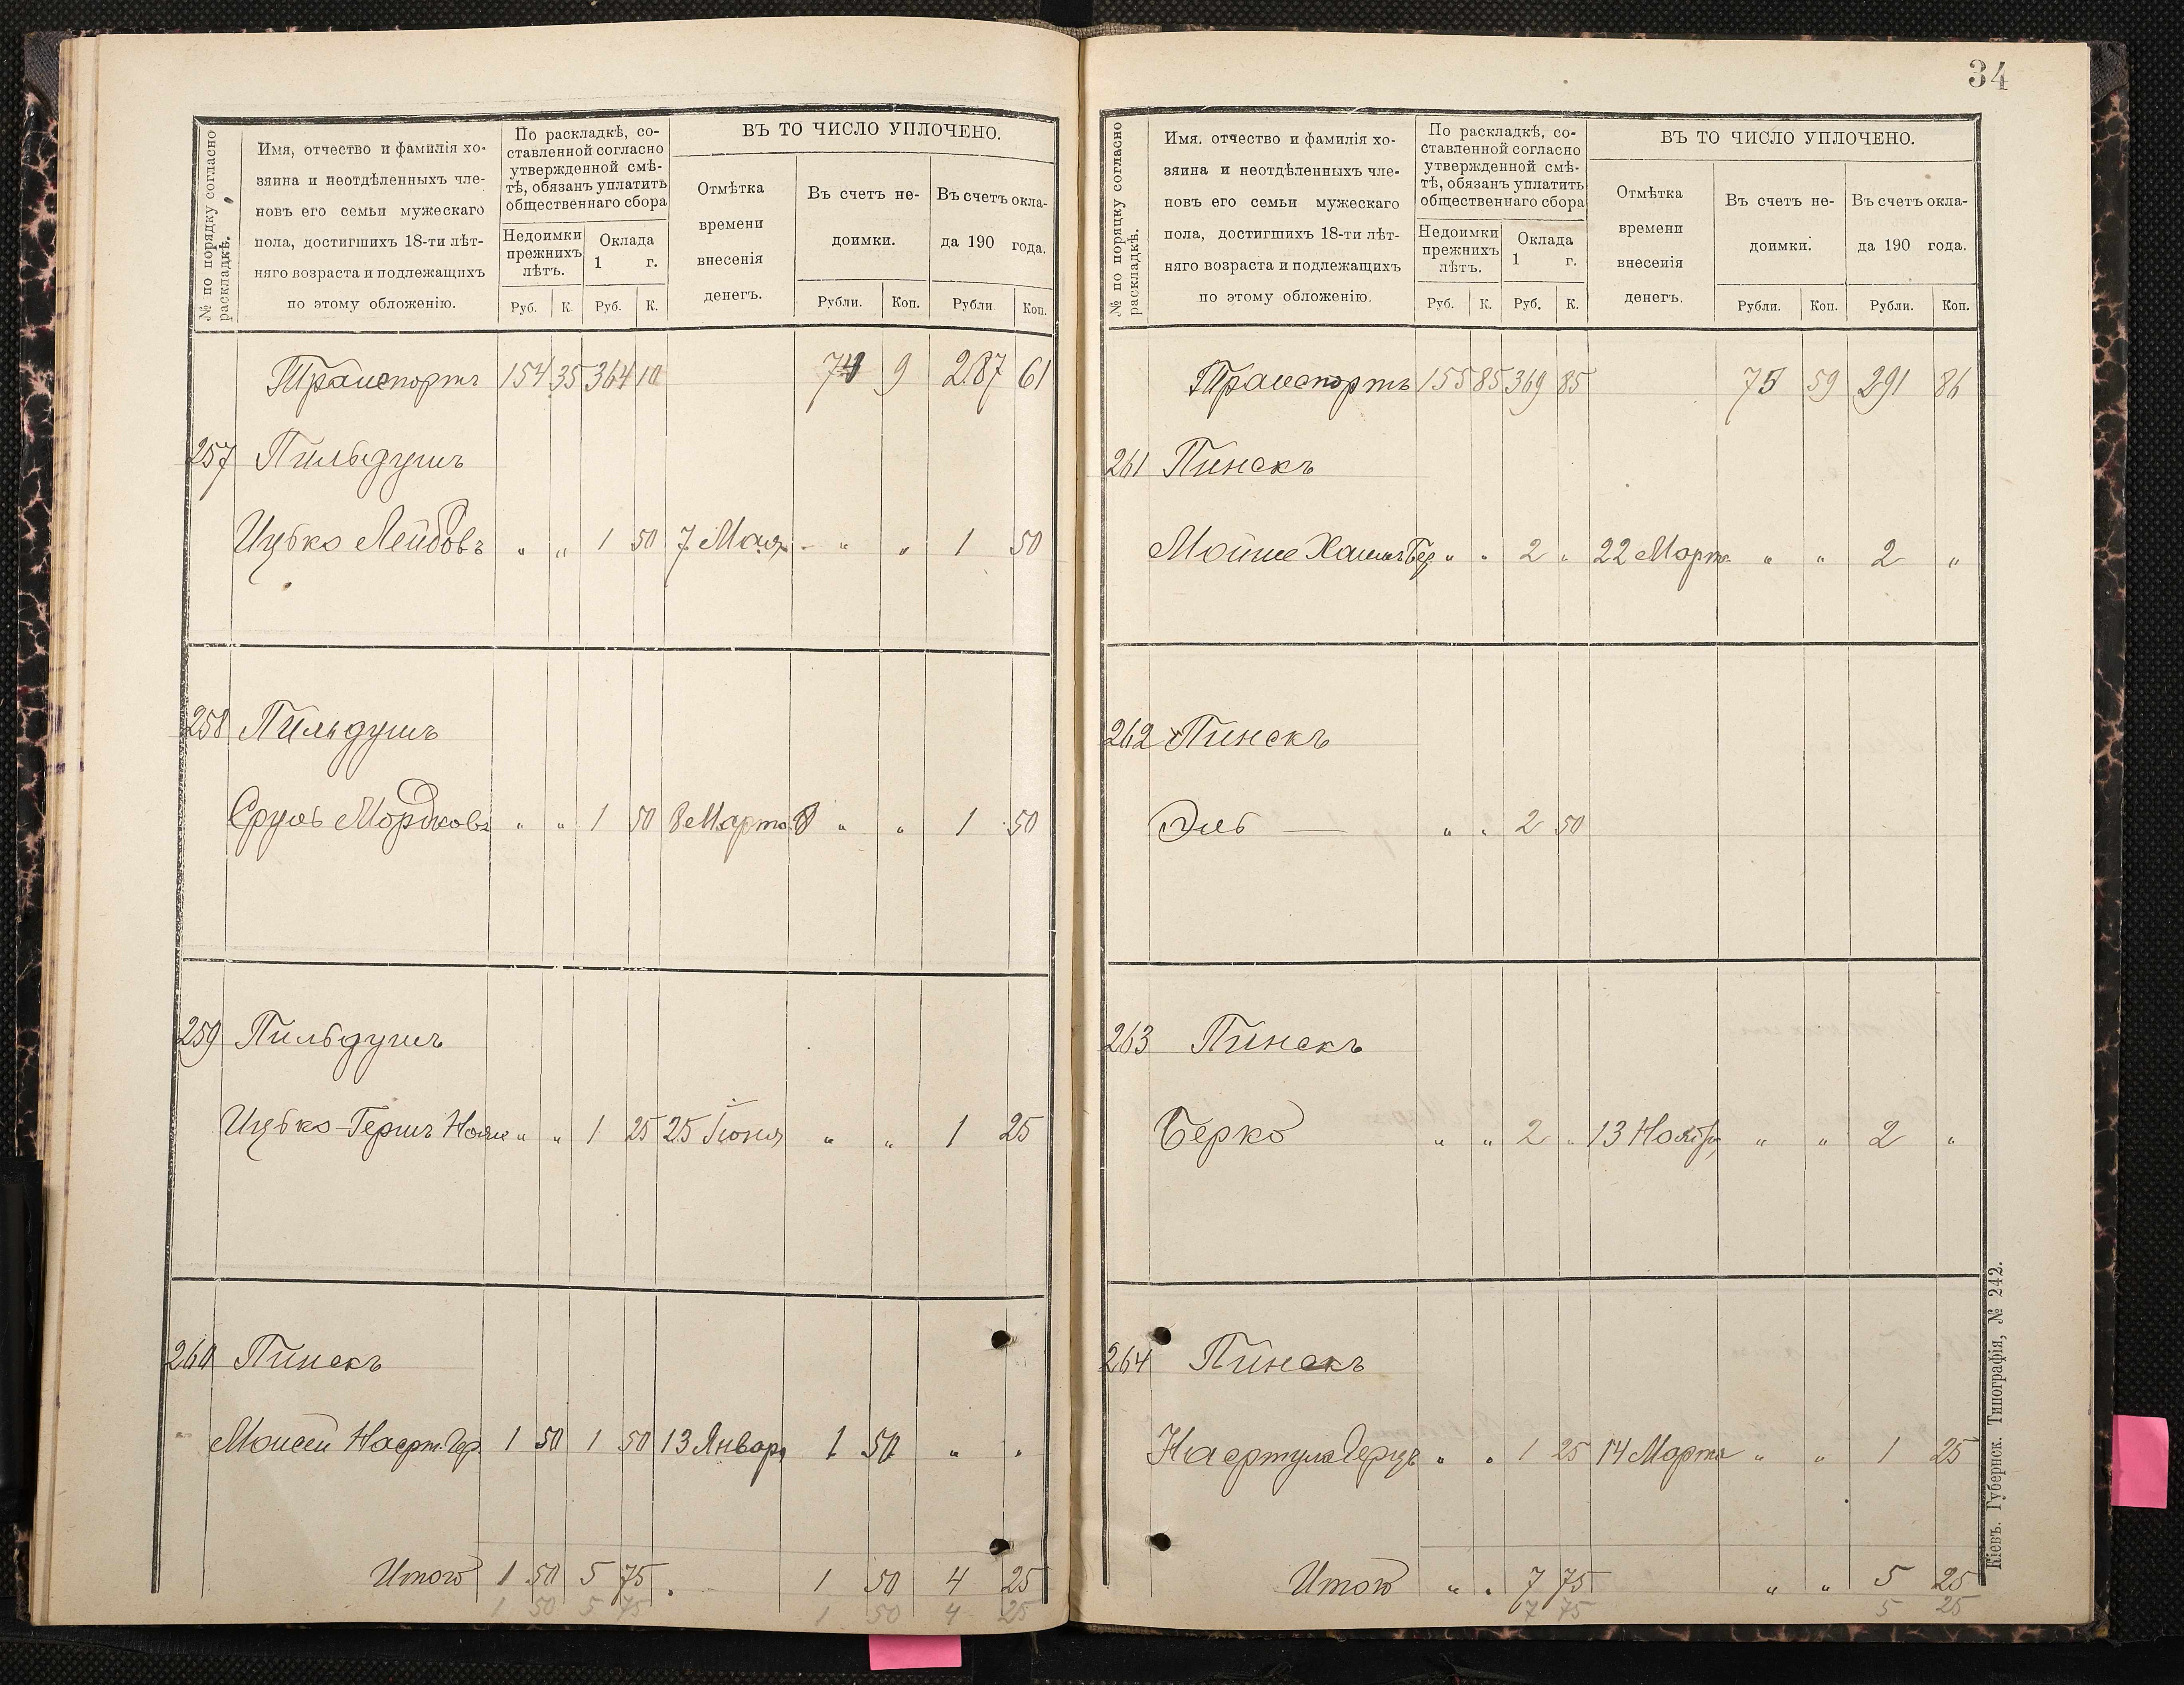 34
№ по порядку согласно раскладкѣ.
Имя, отчество и фамилія хо-
зяина и неотдѣленныхъ чле-
новъ его семьи мужескаго
пола, достигшихъ 18-ти лѣт-
няго возраста и подлежащихъ
по этому обложенію.
По раскладкѣ, со-
ставленной согласно
утвержденной смѣ-
тѣ, обязанъ уплатить
общественнаго сбора
Недоимки
прежнихъ
лѣтъ.
Оклада
1 г.
Руб. К. Руб. К.
ВЪ ТО ЧИСЛО УПЛОЧЕНО.
Отмѣтка
времени
внесенія
денегъ.
Въ счетъ не-
доимки.
Въ счетъ окла-
да 190 года.
Рубли. Коп. Рубли Коп.
Транспортъ 154 35 364 10 74 9 287 61
257 Пильдушъ
Ицько Лейбовъ " " 1 50 7 Мая - " " 1 50
258 Пильдушъ
Сруль Мордковъ " " 1 50 8 Марта " " 1 50
259 Пильдушъ
Ицько-Гершъ " " 1 25 25 Іюня " " 1 25
260 Пинскъ
Моисей 1 50 1 50 13 Январ 1 50 " "
Итого 1 50 5 75 1 50 4 25
1 50 5 75 1 50 4 25
№ по порядку согласно раскладкѣ.
Имя, отчество и фамилія хо-
зяина и неотдѣленныхъ чле-
новъ его семьи мужескаго
пола, достигшихъ 18-ти лѣт-
няго возраста и подлежащихъ
по этому обложенію.
По раскладкѣ, со-
ставленной согласно
утвержденной смѣ-
тѣ, обязанъ уплатить
общественнаго сбора
Недоимки
прежнихъ
лѣтъ.
Оклада
1 г.
Руб. К. Руб. К.
ВЪ ТО ЧИСЛО УПЛОЧЕНО.
Отмѣтка
времени
внесенія
денегъ.
Въ счетъ не-
доимки.
Въ счетъ окла-
да 190 года.
Рубли. Коп. Рубли. Коп.
Транспортъ 155 85 369 85 75 59 291 86
261 Пинскъ
Мойше " " 2 " 22 Марта " " 2 "
262 Пинскъ
Эль — " " 2 50
263 Пинскъ
Берко " " 2 " 13 Ноябр " " 2 "
264 Пинскъ
" " 1 25 14 Марта " " 1 25
Итого " " 7 75 " " 5 25
7 75 5 25
Кіевъ. Губернск. Типографія, № 242.